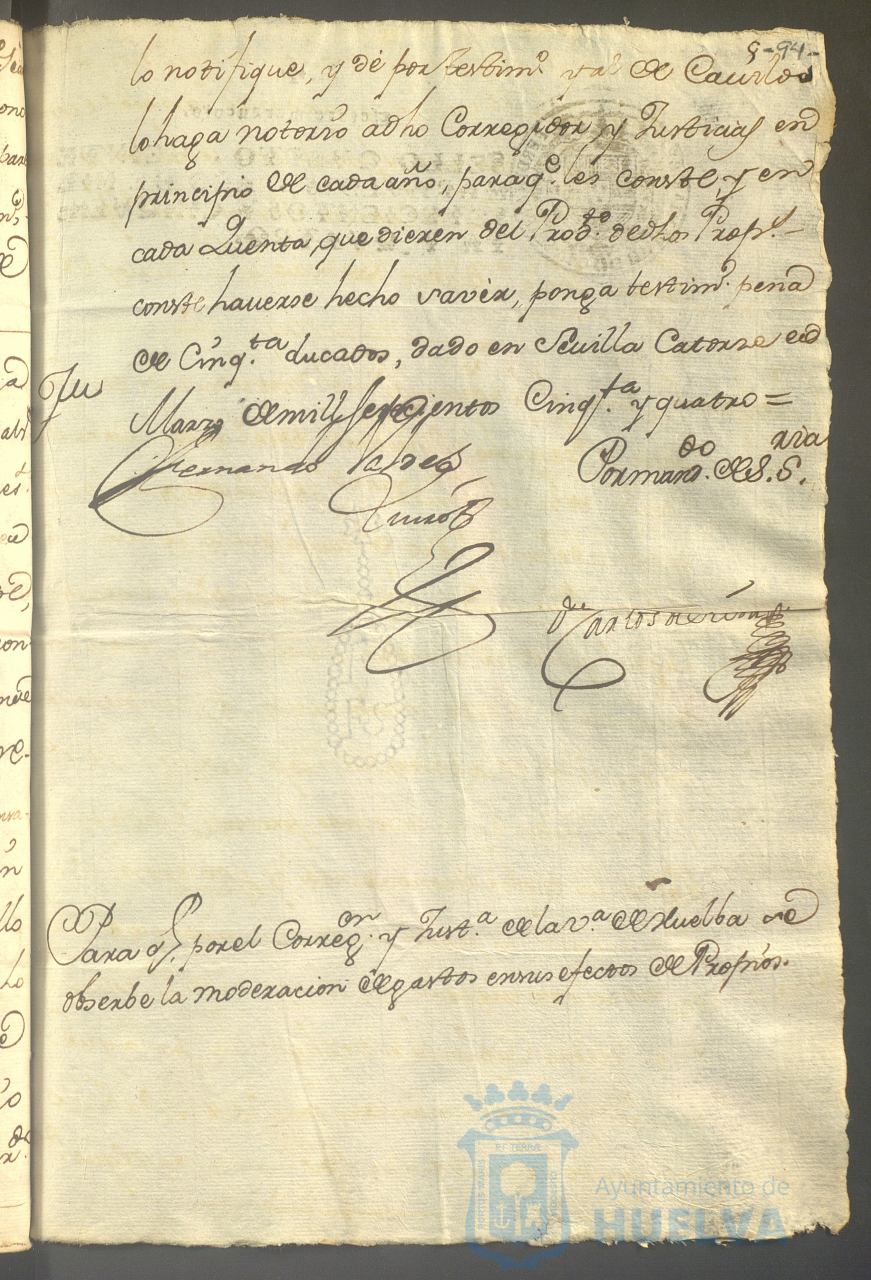 9-94-
lo notifique, y dè por testim.º y al de Cavildo
lo haga notorio a dho Corregidor y Justicias en
principio de cada año, para q.e les conste, y en
cada Quenta, que dieren del Prod.to de dhos Prop.s
conste haverse hecho savèr, ponga testim.º pena
de Cinq.ta ducados, dado en Sevilla Catorze de
Marzo de mill Setecientos Cinq.ta y quatro =
Fernando Valdes
Quirós
Por man.do de S. S.ria
dn Carlos de
Para q.e por el Correg.on y Just.a de la v.a de Huelba se
obserbe la moderacion de gastos en sus efectos de Propios.
Ayuntamiento de
HUELVA